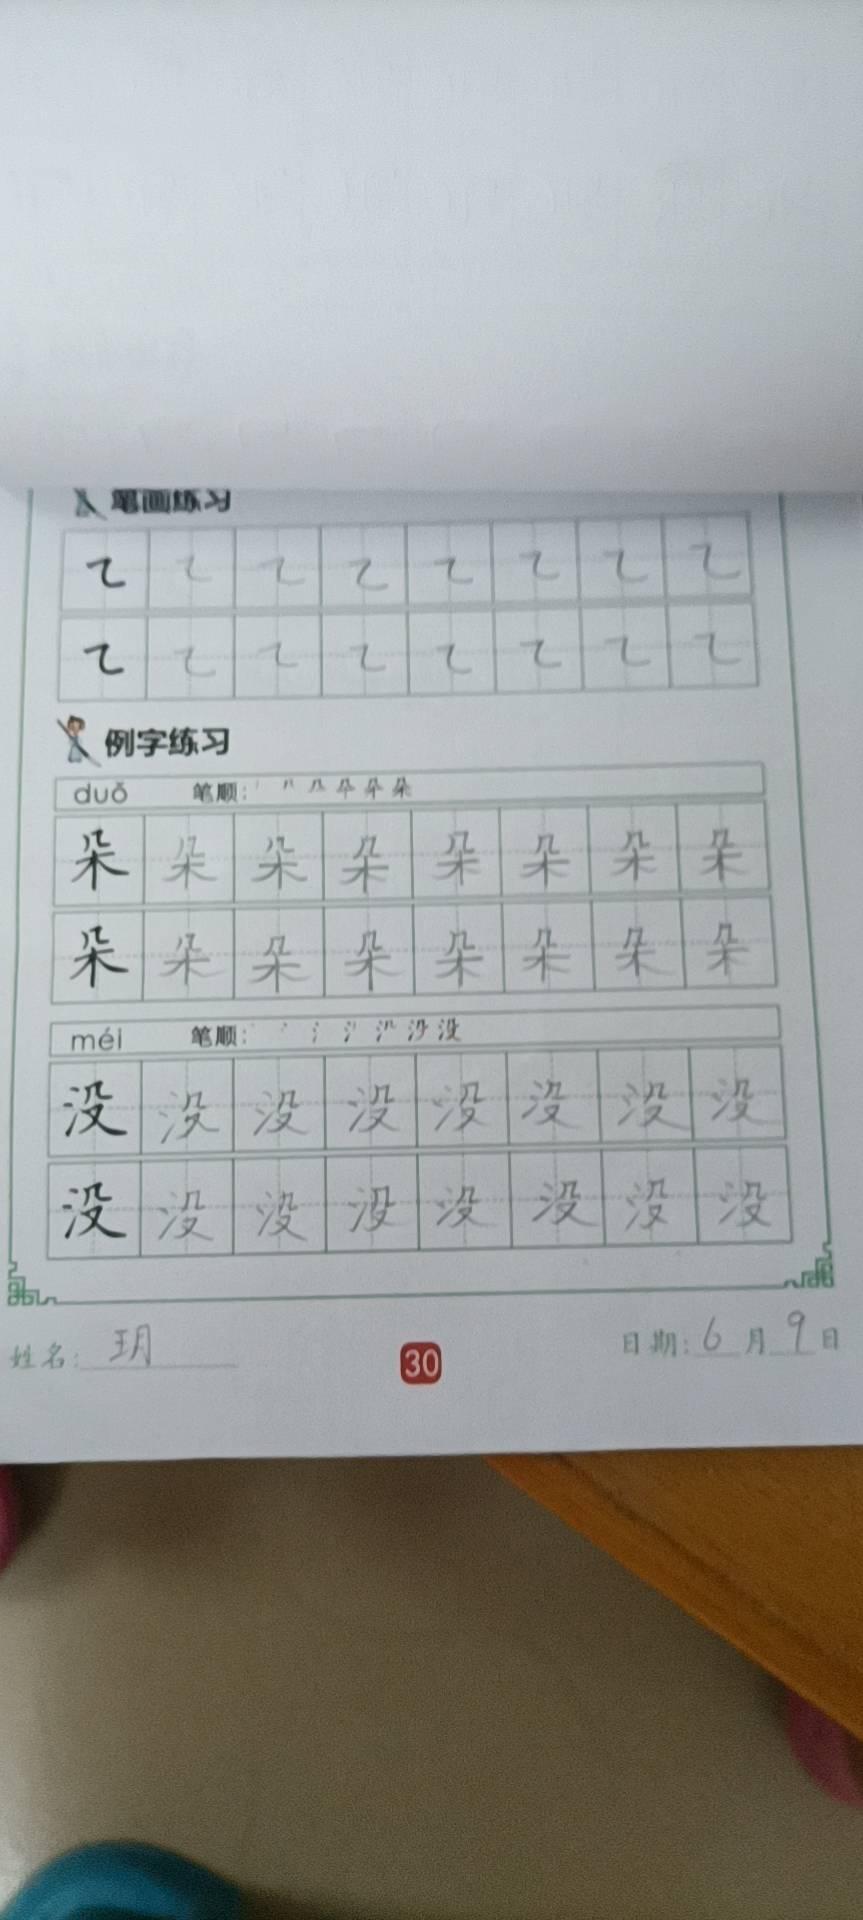 笔画练习
㇍ ㇍ ㇍ ㇍ ㇍ ㇍ ㇍ ㇍
㇍ ㇍ ㇍ ㇍ ㇍ ㇍ ㇍ ㇍
例字练习
duǒ 笔顺:
朵 朵 朵 朵 朵 朵 朵 朵
朵 朵 朵 朵 朵 朵 朵 朵
méi 笔顺:
没 没 没 没 没 没 没 没
没 没 没 没 没 没 没 没
姓名: 玥 30 日期: 6 月 9 日